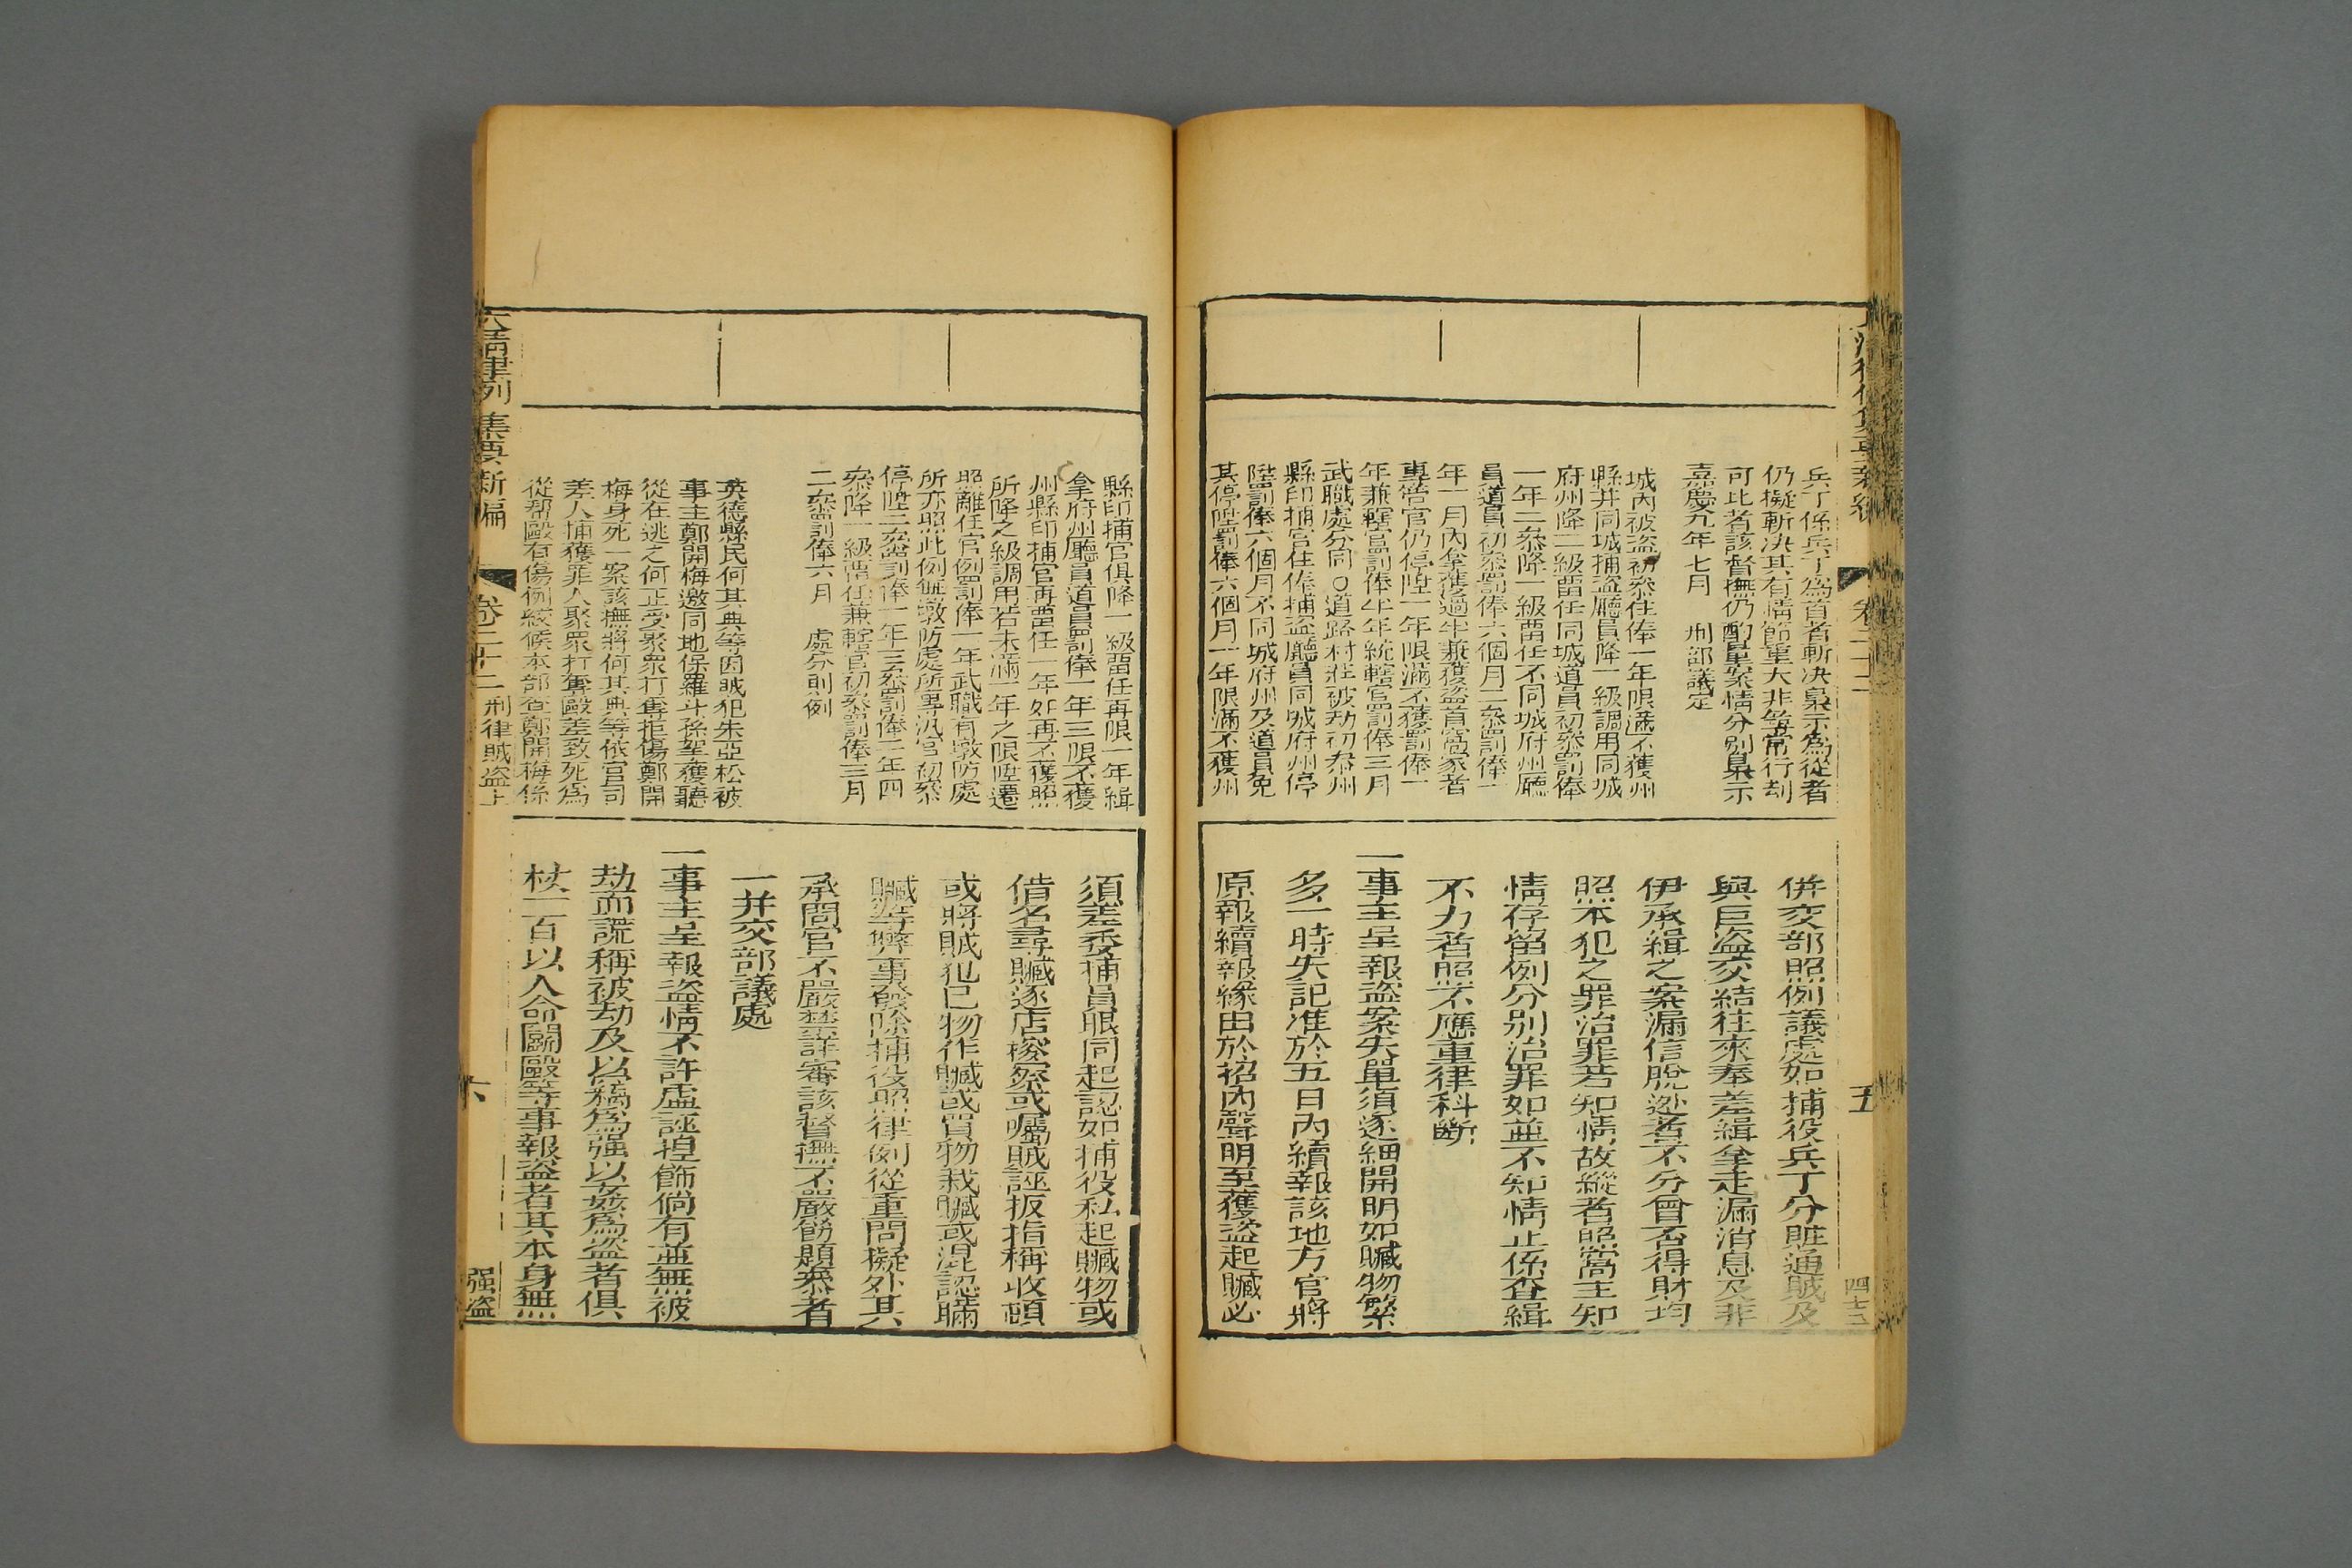 兵丁係兵丁為首者斬决梟示為從者
仍擬斬决其有情節重大非尋常行刦
可比者該督撫仍酌量案情分别梟示
嘉慶九年七月 刑部議定
城內被盗初叅住俸一年限滿不獲州
縣并同城捕盗廳員降一級調用同城
府州降二級畱任同城道員初叅罰俸
一年二叅降一級畱任不同城府州廳
員道員初叅罰俸六個月二叅罰俸一
年一月內拿獲過半兼獲盗首窩家者
專管官仍停陞一年限滿不獲罰俸一
年兼轄官罰俸半年統轄官罰俸三月
武職處分同○道路村莊被刼初叅州
縣印捕官住俸捕盗廳員同城府州停
陞罰俸六個月不同城府州及道員免
其停陞罰俸六個月一年限滿不獲州
併交部照例議處如捕役兵丁分賍通賊及
與巨盗交結往來奉差緝拿走漏消息及非
伊承緝之案漏信脫逃者不分曾否得財均
照本犯之罪治罪若知情故縱者照窩主知
情存留例分别治罪如並不知情止係查緝
不力者照不應重律科斷
一事主呈報盗案失單須逐細開明如贓物繁
多一時失記准於五日內續報該地方官將
原報續報緣由於招內聲明至獲盗起贓必
五
縣印捕官俱降一級畱任再限一年緝
拿府州廳員道員罰俸一年三限不獲
州縣印捕官再畱任一年如再不獲照
所降之級調用若未滿一年之限陞遷
照離任官例罰俸一年武職有墩防處
所亦照此例無墩防處所專汛官初叅
停陞二叅罰俸一年三叅罰俸二年四
叅降一級畱任兼轄官初叅罰俸三月
二叅罰俸六月 處分則例
英德縣民何其典等因賊犯朱亞松被
事主鄭開梅邀同地保羅斗孫拏獲聽
從在逃之何正受聚眾打奪拒傷鄭開
梅身死一案該撫將何其典等依官司
差人捕獲罪人聚眾打奪毆差致死為
從幫毆有傷例絞候本部查鄭開梅係
須差委捕員眼同起認如捕役私起贓物或
借名尋贓逐店搜察或囑賊誣扳指稱收頓
或將賊犯已物作贓或買物栽贓或混認瞞
贓等弊事發除捕役照律例從重問擬外其
承問官不嚴禁詳審該督撫不嚴飭題叅者
一并交部議處
一事主呈報盗情不許虛誣捏飾倘有並無被
刼而謊稱被刼及以竊為强以姦為盗者俱
杖一百以人命鬬毆等事報盗者其本身無
大清律例集要新編 卷二十二 刑律賊盗上 六 强盗